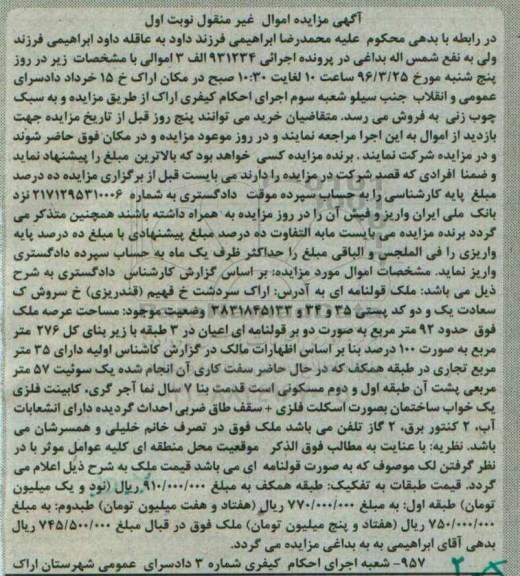 آگهی مزایده اموال غیر منقول نوبت اول
در رابطه با بدهی محکوم علیه محمدرضا ابراهیمی فرزند داود به عاقله داود ابراهیمی فرزند
ولی به نفع شمس اله بداغی در پرونده اجرائی ۹۳۱۲۳۴ الف ۳ اموالی با مشخصات زیر در روز
پنج شنبه مورخ ۹۶/۳/۲۵ ساعت ۱۰ لغایت ۱۰:۳۰ صبح در مکان اراک خ ۱۵ خرداد دادسرای
عمومی و انقلاب جنب سیلو شعبه سوم اجرای احکام کیفری اراک از طریق مزایده و به سبک
چوب زنی به فروش می رسد. متقاضیان خرید می توانند پنج روز قبل از تاریخ مزایده جهت
بازدید از اموال به این اجرا مراجعه نمایند و در روز موعود مزایده و در مکان فوق حاضر شوند
و در مزایده شرکت نمایند . برنده مزایده کسی خواهد بود که بالاترین مبلغ را پیشنهاد نماید
و ضمنا افرادی که قصد شرکت در مزایده را دارند می بایست قبل از برگزاری مزایده ده درصد
مبلغ پایه کارشناسی را به حساب سپرده موقت دادگستری به شماره ۲۱۷۱۲۹۵۳۱۰۰۰۶ نزد
بانک ملی ایران واریز و فیش آن را در روز مزایده به همراه داشته باشند همچنین متذکر می
گردد برنده مزایده می بایست مابه التفاوت ده درصد مبلغ پیشنهادی با مبلغ ده درصد پایه
واریزی را فی المجلس و الباقی مبلغ را حداکثر ظرف یک ماه به حساب سپرده دادگستری
واریز نماید. مشخصات اموال مورد مزایده: بر اساس گزارش کارشناس دادگستری به شرح
ذیل می باشد: ملک قولنامه ای به آدرس: اراک سردشت خ فهیم (قندریزی) خ سروش ک
سعادت یک و دو کد پستی ۳۵ و ۳۴ و ۳۸۳۱۸۴۵۱۳۳ وضعیت موجود: مساحت عرصه ملک
فوق حدود ۹۲ متر مربع به صورت دو بر قولنامه ای اعیان در ۳ طبقه با زیر بنای کل ۲۷۶ متر
مربع به صورت ۱۰۰ درصد بنا بر اساس اظهارات مالک در گزارش کاشناس اولیه دارای ۳۵ متر
مربع تجاری در طبقه همکف که در حال حاضر سفت کاری آن انجام شده یک سوئیت ۵۷ متر
مربعی پشت آن طبقه اول و دوم مسکونی است قدمت بنا ۷ سال نما آجر گری، کابینت فلزی
یک خواب ساختمان بصورت اسکلت فلزی + سقف طاق ضربی احداث گردیده دارای انشعابات
آب، ۲ کنتور برق، ۲ گاز تلفن می باشد ملک فوق در تصرف خانم خلیلی و همسرشان می
باشد. نظریه: با عنایت به مطالب فوق الذکر موقعیت محل منطقه ای کلیه عوامل موثر با در
نظر گرفتن لک موصوف که به صورت قولنامه ای می باشد قیمت ملک به شرح ذیل اعلام می
گردد. قیمت طبقات به تفکیک: طبقه همکف به مبلغ ۹۱۰/۰۰۰/۰۰۰ ریال (نود و یک میلیون
تومان) طبقه اول: به مبلغ ۷۷۰/۰۰۰/۰۰۰ ریال (هفتاد و هفت میلیون تومان) طبدوم: به مبلغ
۷۵۰/۰۰۰/۰۰۰ ریال (هفتاد و پنج میلیون تومان) ملک فوق در قبال مبلغ ۷۴۵/۵۰۰/۰۰۰ ریال
بدهی آقای ابراهیمی به به بداغی مزایده می گردد.
۹۵۷- شعبه اجرای احکام کیفری شماره ۳ دادسرای عمومی شهرستان اراک